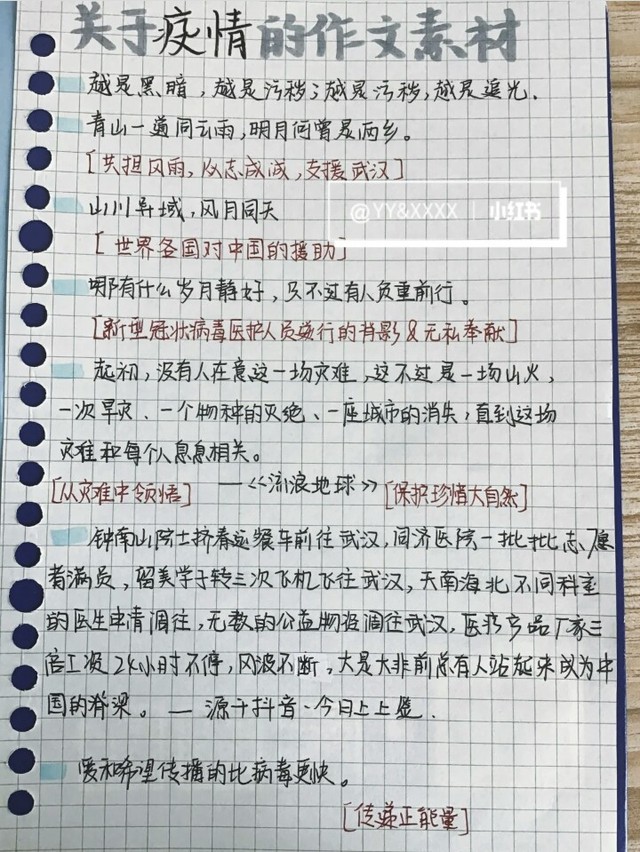 关于疫情的作文素材
越是黑暗，越是污秽；越是污秽，越是追光.
青山一道同云雨，明月何曾是两乡。
[共担风雨，众志成城，支援武汉]
@YY&XXXX | 小红书
山川异域，风月同天
[世界各国对中国的援助]
哪有什么岁月静好，只不过有人负重前行。
[新型冠状病毒医护人员逆行的背影&无私奉献]
起初，没有人在意这一场灾难，这不过是一场山火，
一次旱灾、一个物种的灭绝、一座城市的消失，直到这场
灾难和每个人息息相关。
[从灾难中领悟] —《流浪地球》 [保护珍惜大自然]
钟南山院士挤着运餐车前往武汉，同济医院一批批志愿
者满员，留美学子转三次飞机飞往武汉，天南海北不同科室
的医生申请调往，无数的公益物资调往武汉，医疗产品厂家三
倍工资24小时不停，风波不断，大是大非前总有人站起来成为中
国的脊梁。— 源于抖音、今日上上签.
爱和希望传播的比病毒更快。
[传递正能量]